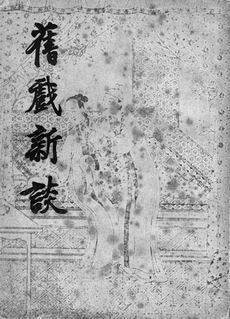 舊戲新談